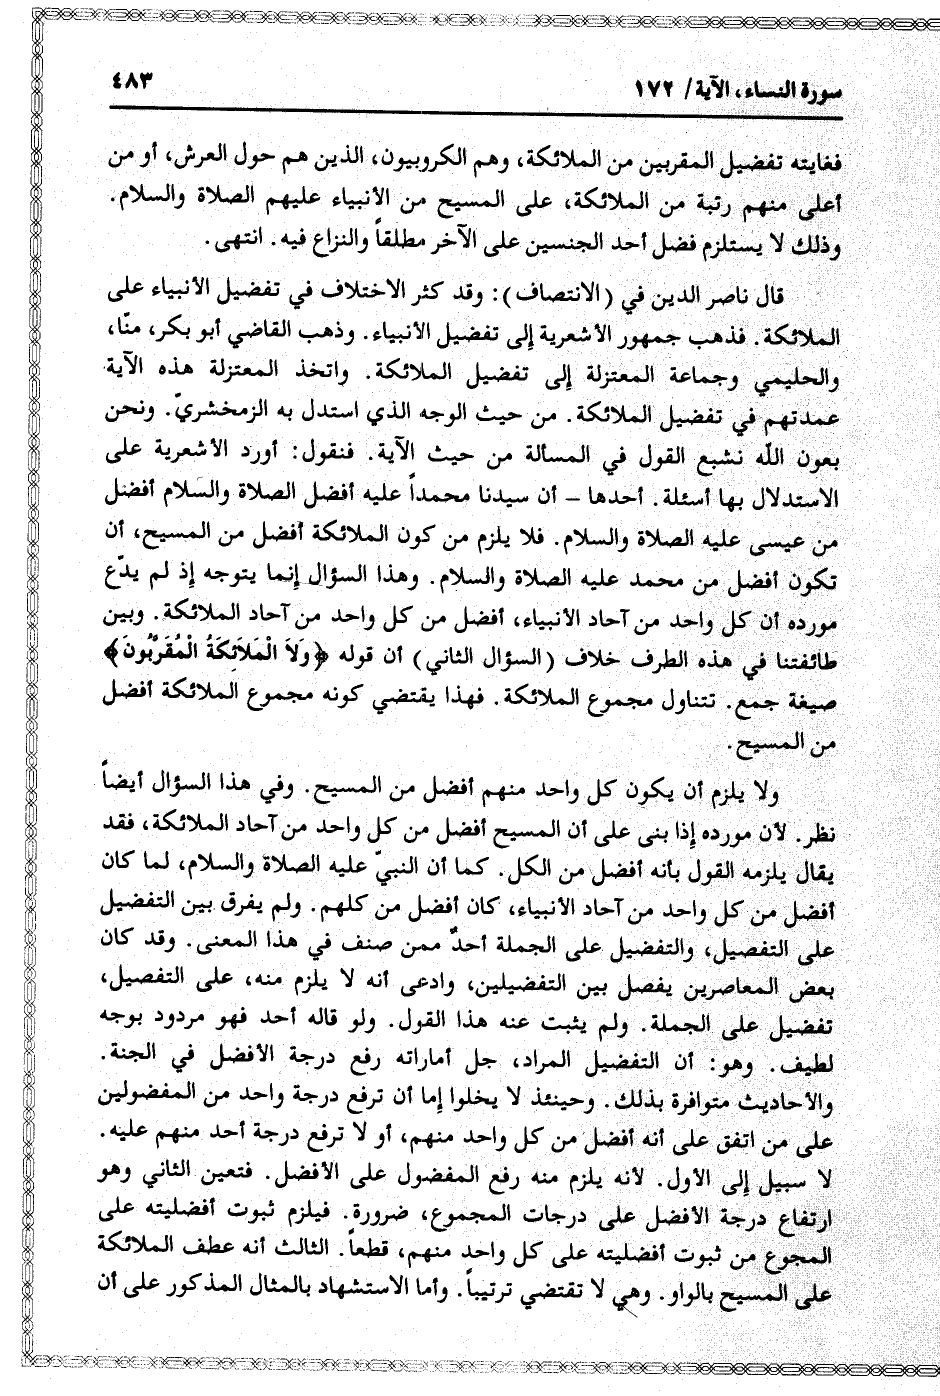 سورة النساء، الآية/ ١٧٢
٤٨٣
فغايته تفضيل المقربين من الملائكة، وهم الكروبيون، الذين هم حول العرش، أو من
أعلى منهم رتبة من الملائكة، على المسيح من الأنبياء عليهم الصلاة والسلام.
وذلك لا يستلزم فضل أحد الجنسين على الآخر مطلقاً والنزاع فيه. انتهى.
قال ناصر الدين في (الانتصاف): وقد كثر الاختلاف في تفضيل الأنبياء على
الملائكة. فذهب جمهور الأشعرية إلى تفضيل الأنبياء. وذهب القاضي أبو بكر، منّا،
والحليمي وجماعة المعتزلة إلى تفضيل الملائكة. واتخذ المعتزلة هذه الآية
عمدتهم في تفضيل الملائكة. من حيث الوجه الذي استدل به الزمخشريّ. ونحن
بعون الله نشبع القول في المسألة من حيث الآية. فنقول: أورد الأشعرية على
الاستدلال بها أسئلة. أحدها – أن سيدنا محمداً عليه أفضل الصلاة والسلام أفضل
من عيسى عليه الصلاة والسلام. فلا يلزم من كون الملائكة أفضل من المسيح، أن
تكون أفضل من محمد عليه الصلاة والسلام. وهذا السؤال إنما يتوجه إذ لم يدّع
مورده أن كل واحد من آحاد الأنبياء، أفضل من كل واحد من آحاد الملائكة. وبين
طائفتنا في هذه الطرف خلاف (السؤال الثاني) أن قوله ﴿وَلاَ الْمَلاَئكَةُ الْمُقَرَّبُونَ﴾
صيغة جمع. تتناول مجموع الملائكة. فهذا يقتضي كونه مجموع الملائكة أفضل
من المسيح.
ولا يلزم أن يكون كل واحد منهم أفضل من المسيح. وفي هذا السؤال أيضاً
نظر. لأن مورده إذا بنى على أن المسيح أفضل من كل واحد من آحاد الملائكة، فقد
يقال يلزمه القول بأنه أفضل من الكل. كما أن النبيّ عليه الصلاة والسلام، لما كان
أفضل من كل واحد من آحاد الأنبياء، كان أفضل من كلهم. ولم يفرق بين التفضيل
على التفصيل، والتفضيل على الجملة أحدٌ ممن صنف في هذا المعنى. وقد كان
بعض المعاصرين يفصل بين التفضيلين، وادعى أنه لا يلزم منه، على التفصيل،
تفضيل على الجملة. ولم يثبت عنه هذا القول. ولو قاله أحد فهو مردود بوجه
لطيف. وهو: أن التفضيل المراد، جل أماراته رفع درجة الأفضل في الجنة.
والأحاديث متوافرة بذلك. وحينئذ لا يخلوا إما أن ترفع درجة واحد من المفضولين
على من اتفق على أنه أفضل من كل واحد منهم، أو لا ترفع درجة أحد منهم عليه.
لا سبيل إلى الأول. لأنه يلزم منه رفع المفضول على الأفضل. فتعين الثاني وهو
ارتفاع درجة الأفضل على درجات المجموع، ضرورة. فيلزم ثبوت أفضليته على
المجوع من ثبوت أفضليته على كل واحد منهم، قطعاً. الثالث أنه عطف الملائكة
على المسيح بالواو. وهي لا تقتضي ترتيباً. وأما الاستشهاد بالمثال المذكور على أن